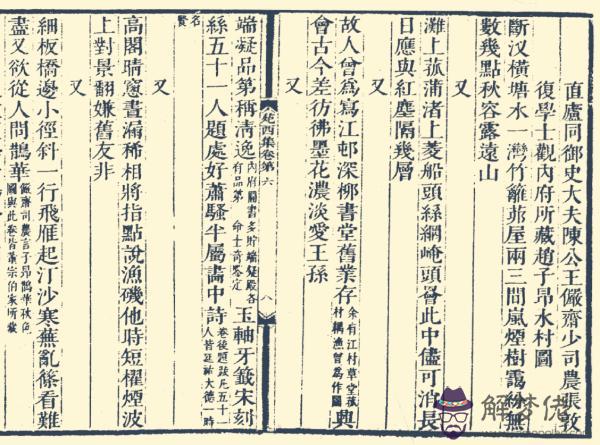 直廬同御史大夫陳公王儼齋少司農張敦
復學士觀內府所藏趙子昂水村圖
斷汊橫塘水一灣竹籬茆屋兩三間嵐煙樹靄紛無
數幾點秋容露遠山
又
灘上菰蒲渚上菱船頭絲網崦頭罾此中儘可消長
日應與紅塵隔幾層
又
故人曾爲寫江邨深柳書堂舊業存余有江村草堂孫村耦漁曾爲作圖興
會古今差彷彿墨花濃淡愛王孫
又
苑西集卷第六 八
端凝品第稱淸逸內府圖書多貯端凝殿各有品第 命士奇鑒定玉軸牙籤宋刻
絲五十一人題處好蕭騷半屬畵中詩卷後題跋凡五十一人皆延祐大德一時
名賢
又
高閣晴窻晝漏稀相將指點說漁磯他時短櫂煙波
上對景翻嫌舊友非
又
細板橋邊小徑斜一行飛雁起汀沙寒蕪亂篠看難
盡又欲從人問鵲華儼齋司農言子昂鵲華秋色圖與此卷皆宗伯家所藏
解梦佬